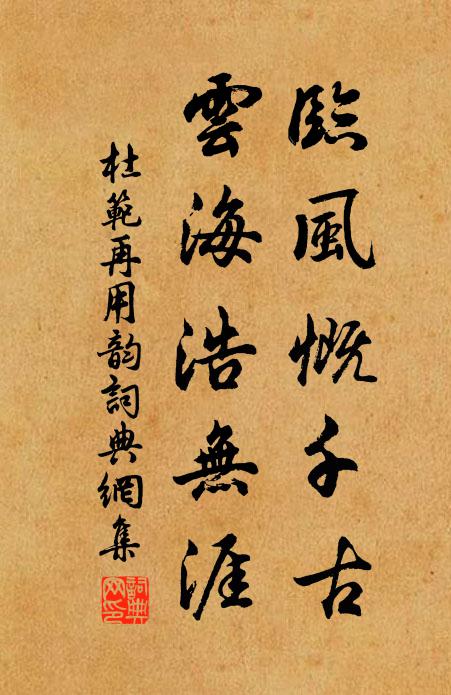 臨風慨千古
雲海浩無涯
杜範再用韵詞典網集
詞典網印